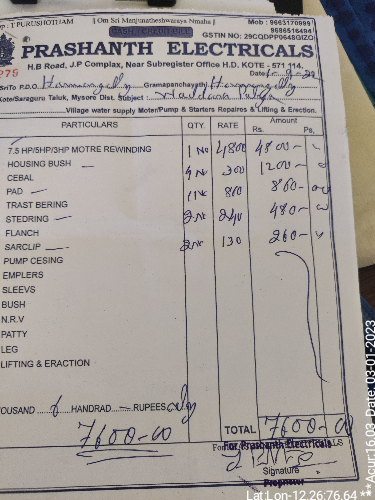 : T PURUSHOTHAM | Om Sri Manjunatheshwaraya Namaha | Mob : 9663170999
CASH/CREDIT BILL 9686516494
GSTIN NO: 29CQDPP0648G1ZO
PRASHANTH ELECTRICALS
H.B Road, J.P Complax, Near Subregister Office H.D. KOTE - 571 114.
275 Date
SriTo P.D.O. Gramapanchayathi
Kote/Saraguru Taluk, Mysore Dist. Subject :
Village water supply Moter/Pump & Starters Repaires & Lifting & Erection.
PARTICULARS QTY. RATE Amount
Rs. Ps,
7.5 HP/5HP/3HP MOTRE REWINDING 1 No 4800 4800-
HOUSING BUSH 4 No 300 1200-
CEBAL
PAD 1 No 860 860-
TRAST BERING
STEDRING 2 No 240 480-
FLANCH
SARCLIP 2 No 130 260-
PUMP CESING
EMPLERS
SLEEVS
BUSH
N.R.V
PATTY
LEG
LIFTING & ERACTION
OUSAND 6 HANDRAD RUPEES only
TOTAL 7600-00
7600-00
For Prashanth Electricals
Signature
Proprietor
Lat Lon-12.26:76.64
**Acur:16.03-Date: 03-01-2023